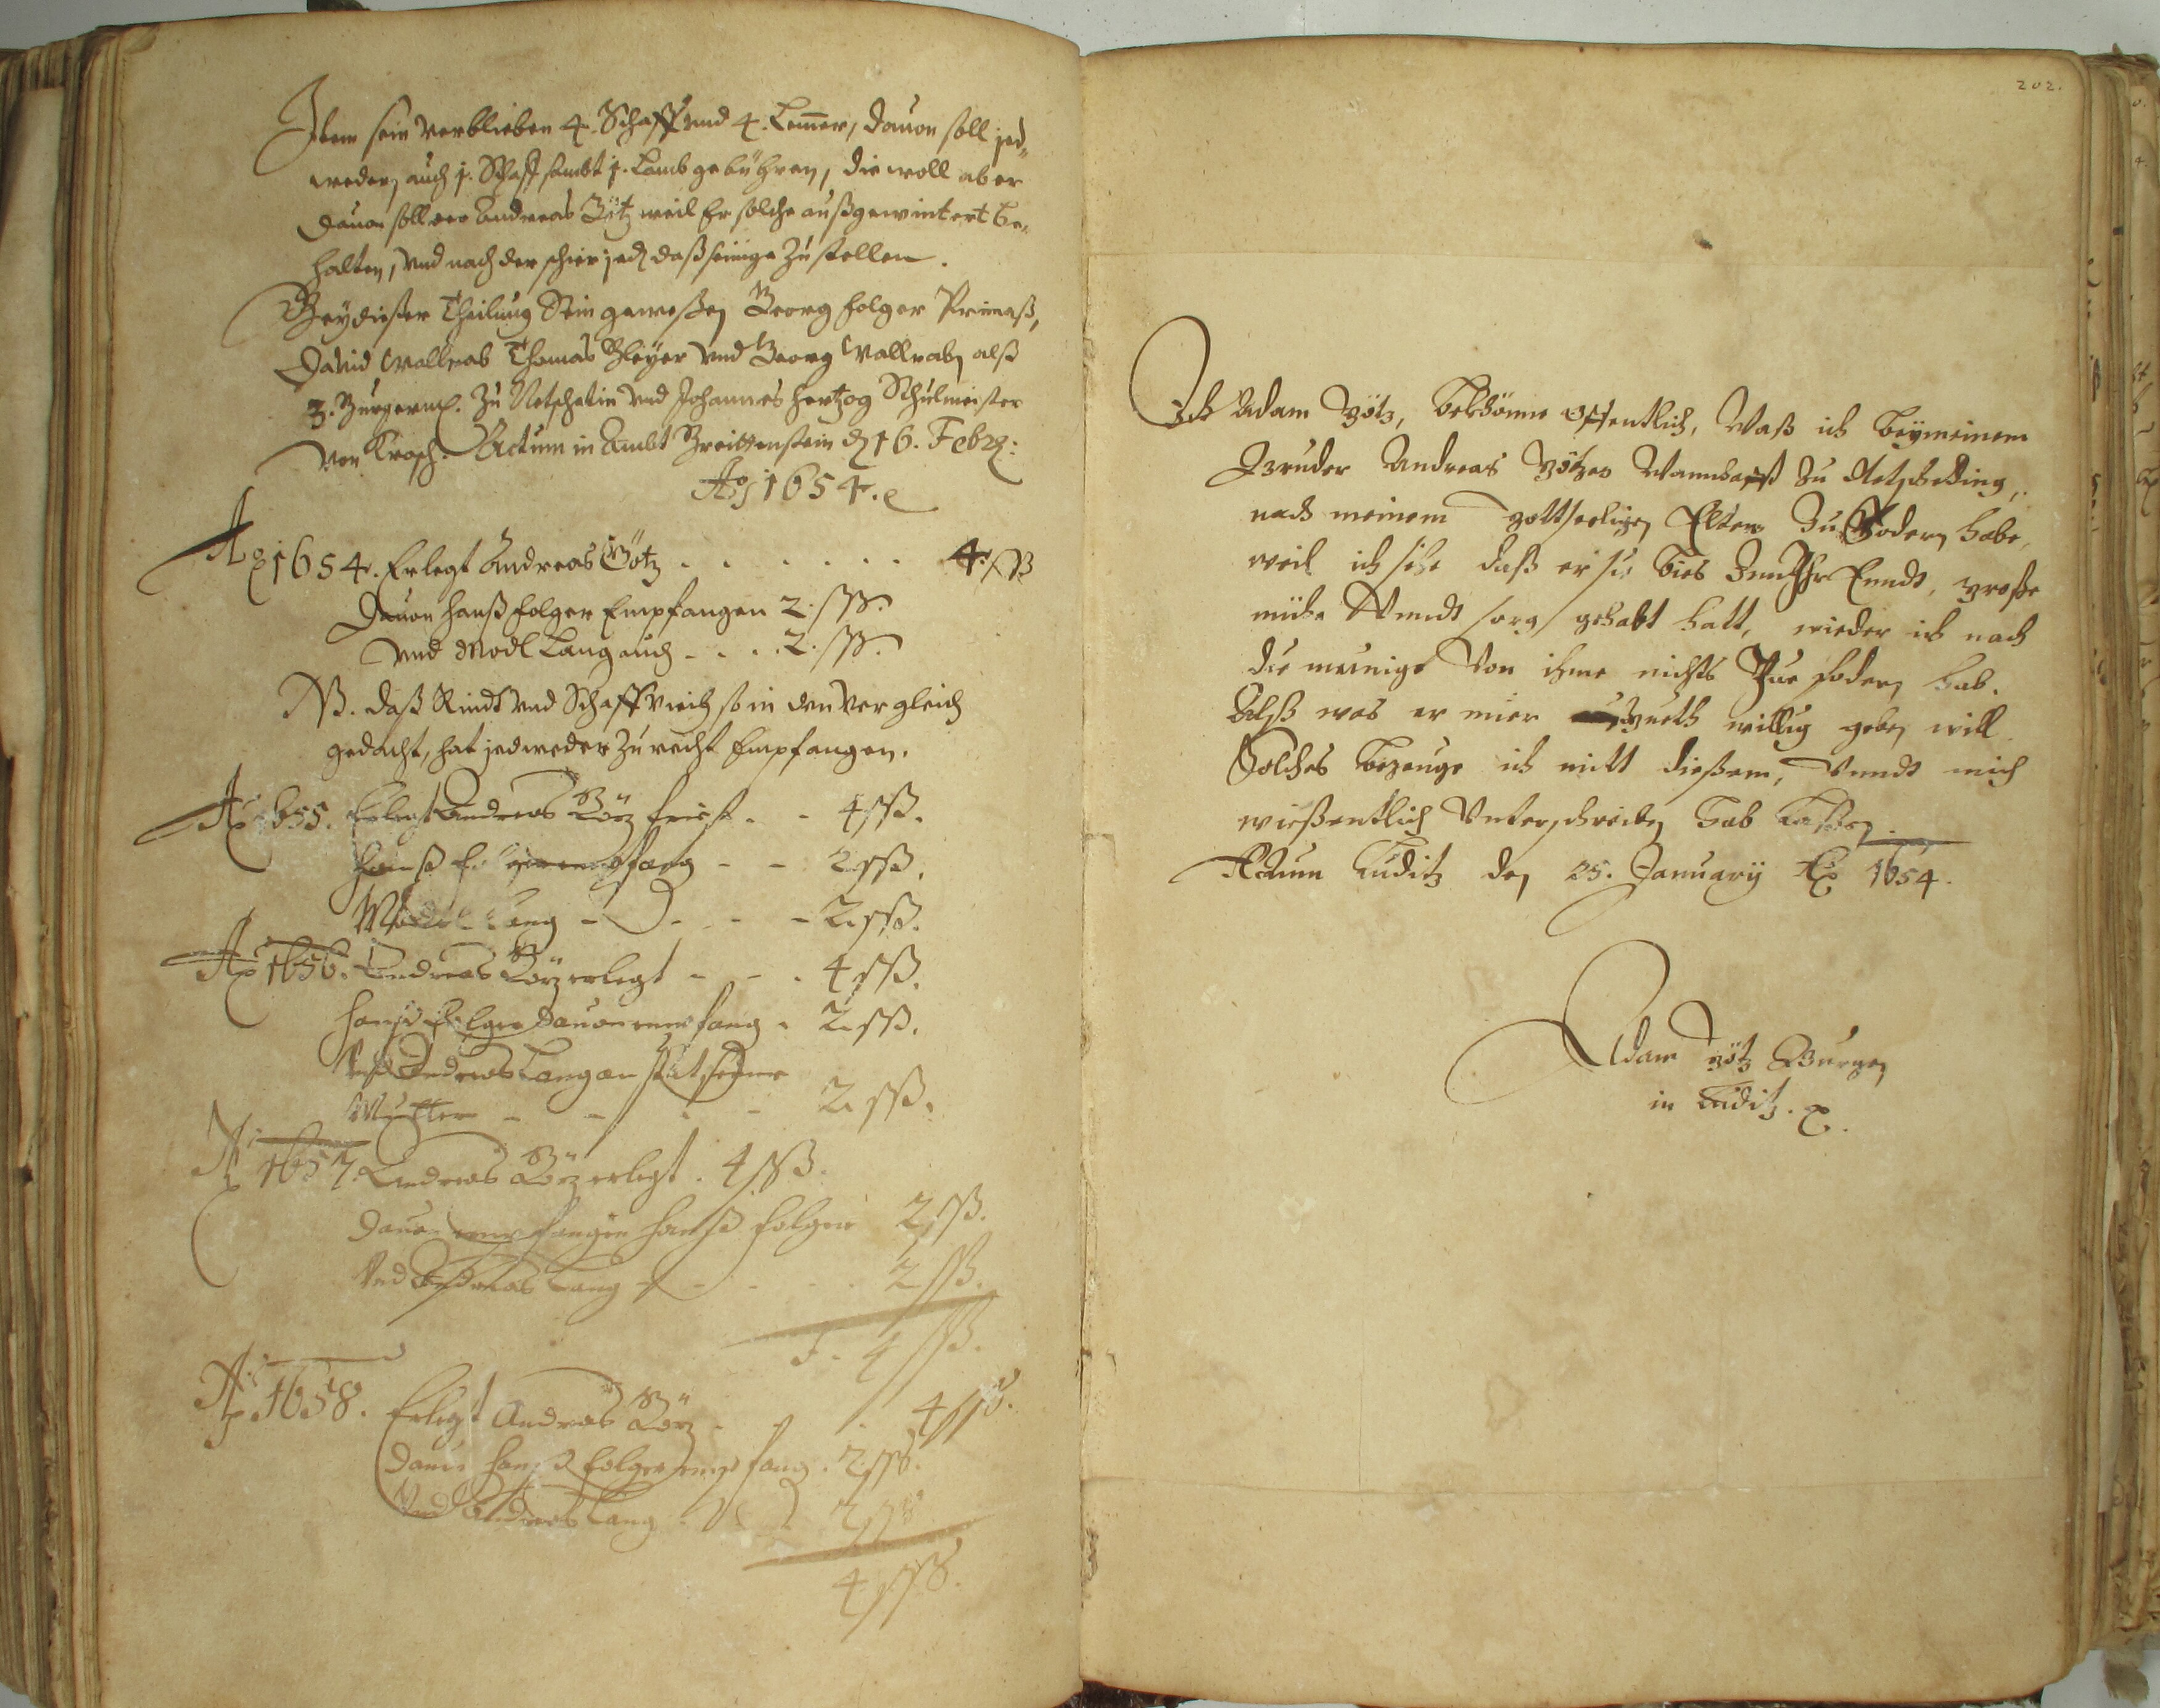 Item sein verblieben 4. Schaff vnd 4. Lemmer, dauon soll jed-
weder auch j. Schaff sambt j. Lamb gebühren, die woll aber
dauon soll der Andreas Götz weil Er solche außgewintert be-
halten, vnd nach der schier jed daß seinige zu stellen.
Bey dießer Theilung Sein geweßen Georg Holger Primaß,
Dauid Wallrab Thomas Bleyer vnd Georg Wallrab alß
3. Burgerm. zu Netschetin vnd Johannes Hertzog Schulmeister
von Krasch. Actum in Ambt Breittenstein d 16. Febr:
Ao 1654.
Ao 1654. Erlegt Andreas Götz . . . . . . 4. ßß
Dauon Hanß Holger Empfangen 2. ßß.
vnd Madl Lang auch - . . . 2. ßß.
NB. daß Rindt vnd Schaff vieh so in den vergleich
gedacht, hat jedweder zu recht Empfangen.
Ao 1655. Erlegt Andreas Götz frist - - 4 ßß.
Hanß Holger empfang - - 2 ßß.
Madl Lang - - - - 2. ßß.
Ao 1656. Andreas Götz erlegt - - . 4 ßß.
Hanß Holger dauon empfang - 2 ßß.
Vnd Andreas Lang an stat seiner
Mutter - - - - 2. ßß.
Ao 1657. Andreas Götz erlegt . 4 ßß.
Dauon empfangen Hanß Holger 2 ßß.
Vnd Andreas Lang - - . . 2 ßß.
4 ßß.
Ao 1658. Erlegt Andreas Götz - - . 4 ßß.
Dauon Hanß Holger empfang . 2 ßß.
Vnd Andreas Lang . 2 ßß
4 ßß.
202.
Ich Adam Götz, bekhönne offentlich, Waß ich bey meinem
Bruder Andreas Götzen Wannhafft zu Netscheding,
nach meinem gottseeligen Eltern zu Fodern habe,
weil ich sihe daß er sie bies Inn Ihr Enndt, große
mühe Vnndt sorg gehabt hatt, wieder ich noch
die meinige von ihme nichts Zue fodern hab.
Alß was er mier guth willig geben will.
Solches bezeuge ich mitt dießem, Vnndt mich
wießentlich Vnterschreiben hab laßen.
Actum Luditz den 25. January Ao 1654.
Adam Götz Burger
in Luditz.